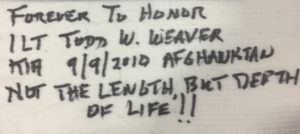 FOREVER TO HONOR
1LT TODD W. WEAVER
KIA 9/9/2010 AFGHANISTAN
NOT THE LENGTH, BUT DEPTH
OF LIFE!!